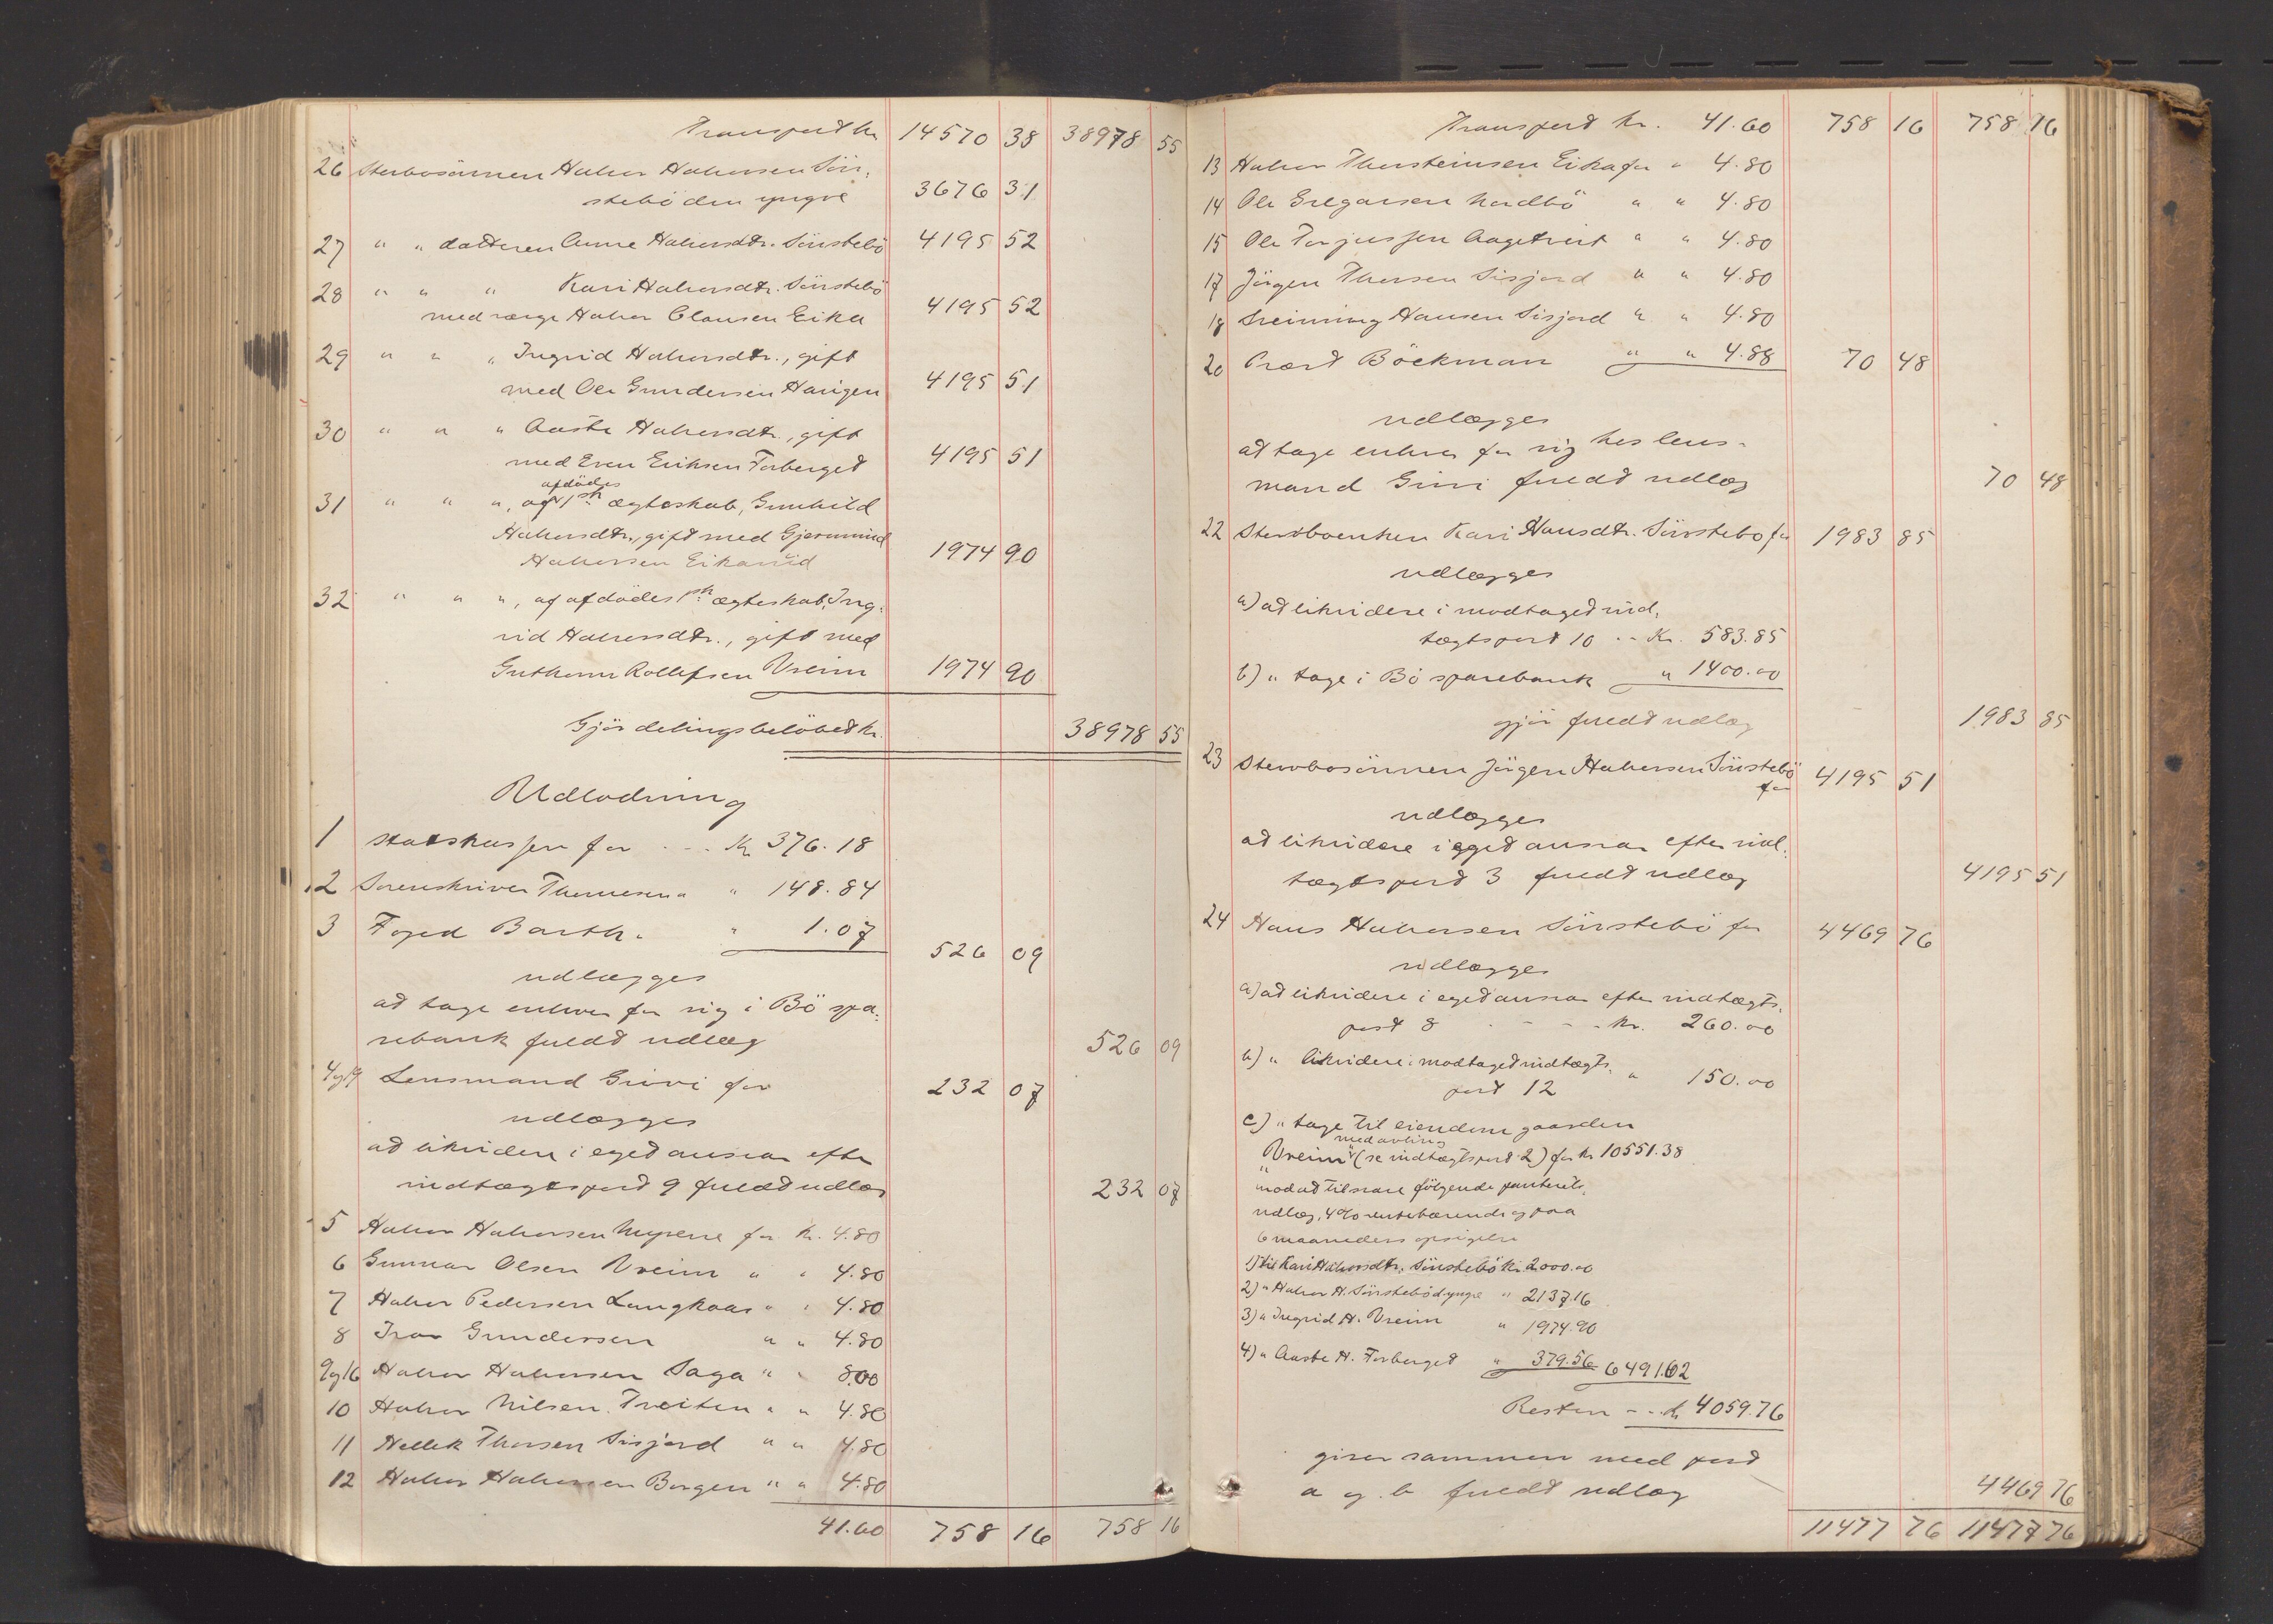 Transport kr 14570 38 38978 55
26 Sterbosönnen Halvor Halvorsen Sön-
stebö den yngre 3676 31
27 " " datteren Anne Halvorsdtr. Sönstebö 4195 52
28 " " " Kari Halvorsdtr. Sönstebö
med verge Halvor Clausen Eika 4195 52
29 " " " Ingrid Halvorsdtr., gift
med Ole Gundersen Haugen 4195 51
30 " " " Aaste Halvorsdtr., gift
med Even Eriksen Forberget 4195 51
31 " " ", af afdödes 1ste ægteskab, Gunhild
Halvorsdtr., gift med Gjermund
Halvorsen Eikamid 1974 90
32 " " ", af afdödes 1ste ægteskab, Ing-
rid Halvorsdtr., gift med
Guthorm Rollefsen Vreim 1974 90
Gjör delingsbelöbet kr. 38978 55
Udlodning
1 Statskassen for - - - Kr 376.18
2 Sorenskriver Thomesen " " 148.84
3 Foged Barth " " 1.07 526 09
udlægges
at tage enhver for sig i Bö spa-
rebank fuldt udlæg 526 09
4 og 19 Lensmand Grivi for 232 07
udlægges
at likvidere i eget ansvar efter
indtægtspost 9 fuldt udlæg 232 07
5 Halvor Halvorsen Nyperre for Kr. 4.80
6 Gunnar Olsen Vreim " " 4.80
7 Halvor Pedersen Langkaas " " 4.80
8 Ivar Gundersen " " 4.80
9 og 16 Halvor Halvorsen Saga " " 8.00
10 Halvor Nilsen Treiten " " 4.80
11 Hellek Thorsen Sisjord " " 4.80
12 Halvor Halvorsen Borgen " " 4.80
41.60 758 16 758 16
Transport kr. 41.60 758 16 758 16
13 Halvor Thorsteinsen Eika for " 4.80
14 Ole Gregarsen Nordbö " " 4.80
15 Ole Torjussen Aagetveit " " 4.80
17 Jörgen Thorsen Sisjord " " 4.80
18 Sveinung Hansen Sisjord " " 4.80
20 Præst Böckman " " 4.88 70 48
udlægges
at tage enhver for sig hos lens-
mand Grivi fuldt udlæg 70 48
22 Sterboenken Kari Hansdtr. Sönstebö for 1983 85
udlægges
a) at likvidere i modtaget ind-
tægtspost 10 - - Kr. 583.85
b) " tage i Bö sparebank " 1400.00
gjör fuldt udlæg 1983 85
23 Sterbosönnen Jörgen Halvorsen Sönstebö
for 4195 51
udlægges
at likvidere i eget ansvar efter ind-
tægtspost 3 fuldt udlæg 4195 51
24 Hans Halvorsen Sönstebö for 4469 76
udlægges
a) at likvidere i eget ansvar efter indtægts-
post 8 - - - - kr. 260.00
b) " likvidere i modtaget indtægts-
post 12 " 150.00
c) " tage til eiendom gaarden
"Vreim" med avling (se indtægtspost 2) for kr 10551.38
mod at tilsvare fölgende panterets-
udlæg, 4% rentebærende og paa
6 maaneders opsigelse
1) til Kari Halvorsdtr. Sönstebö kr. 2000.00
2) " Halvor H. Sönstebö d. yngre " 2137.16
3) " Ingrid H. Vreim " 1974.90
4) " Aaste H. Forberget " 379.56 6491.62
Resten - - - kr 4059.76
giver sammen med post
a og b fuldt udlæg 4469 76
11477 76 11477 76